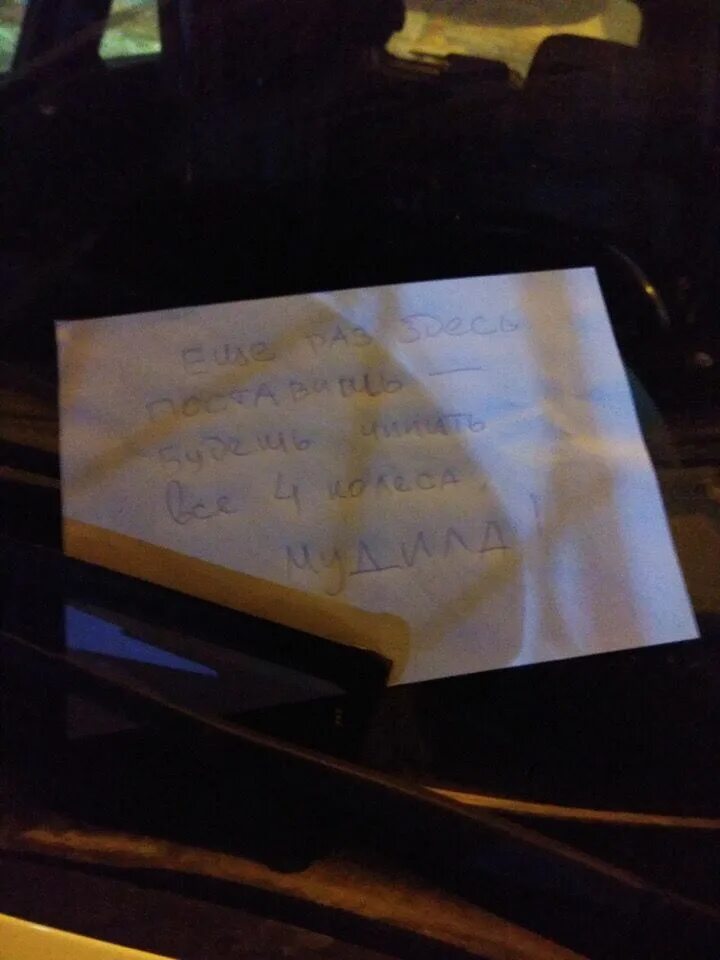 Еще раз здесь
поставишь —
будешь чинить
все 4 колеса,
мудила!